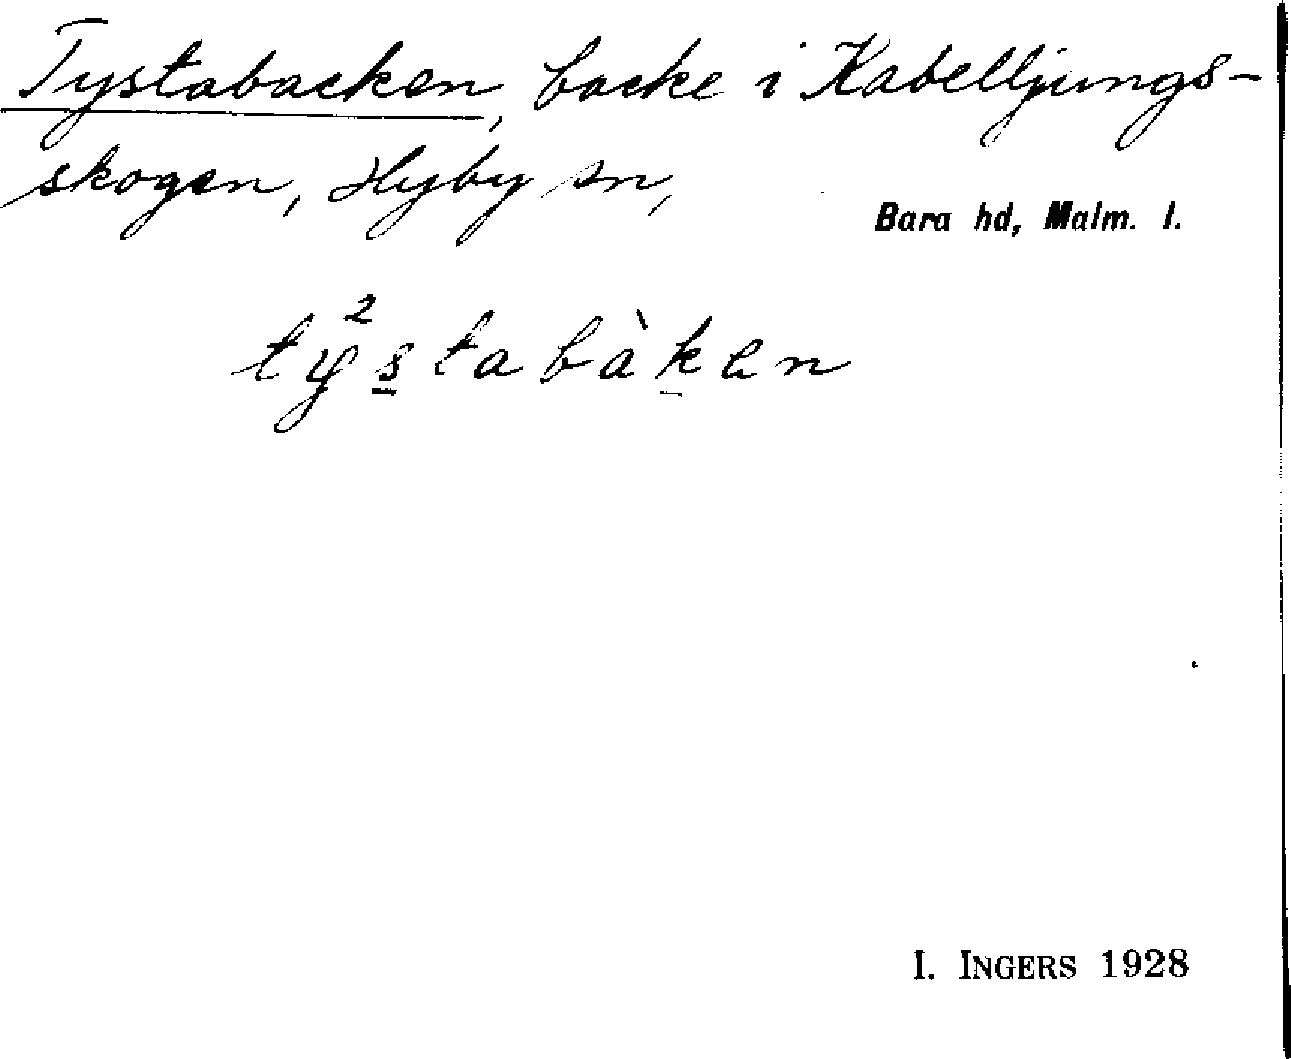 Tystabacken, backe i Kabelljungs-
skogen, Hyby sn,
Bara hd, Malm. l.
I. INGERS 1928